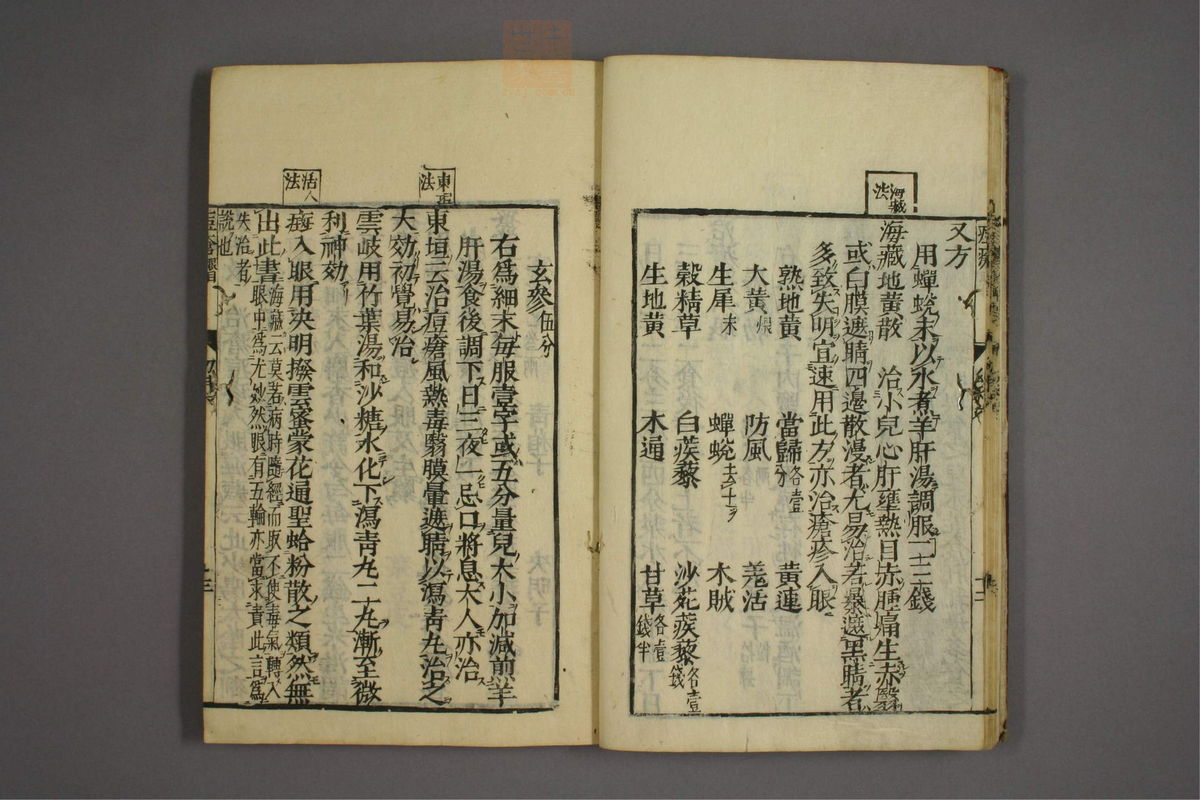 海藏法
又方
用蟬蛻末以水煮羊肝湯調服二三錢
海藏地黃散 治小兒心肝壅熱目赤腫痛生赤翳
或白膜遮睛四邊散漫者尤易治若暴遮黑睛者
多致失明宜速用此方亦治瘡疹入眼
熟地黃 當歸各壹分 黃連
大黃煨 防風 羗活
生犀末 蟬蛻去土 木賊
穀精草 白蒺藜 沙苑蒺藜各壹錢
生地黃 木通 甘草各壹錢半
玄參伍分
右爲細末每服壹字或五分量兒大小加減煎羊
肝湯食後調下日三夜一忌口將息大人亦治
東垣法
東垣云治痘瘡風熱毒翳膜暈遮睛以瀉青丸治之
大効初覺易治
雲岐用竹葉湯和沙糖水化下瀉青丸二丸漸至微
利神効
活人法
毎入眼用決明撥雲蜜蒙花通聖蛤粉散之類然無
出此書海藏云莫若病時隨經而取不使毒氣轉入
眼中爲尤妙然眼有五輪亦當求責此言爲
失治者
說也